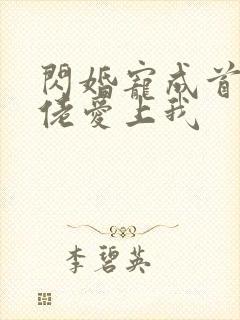 閃婚寵成首
佬愛上我
李碧英